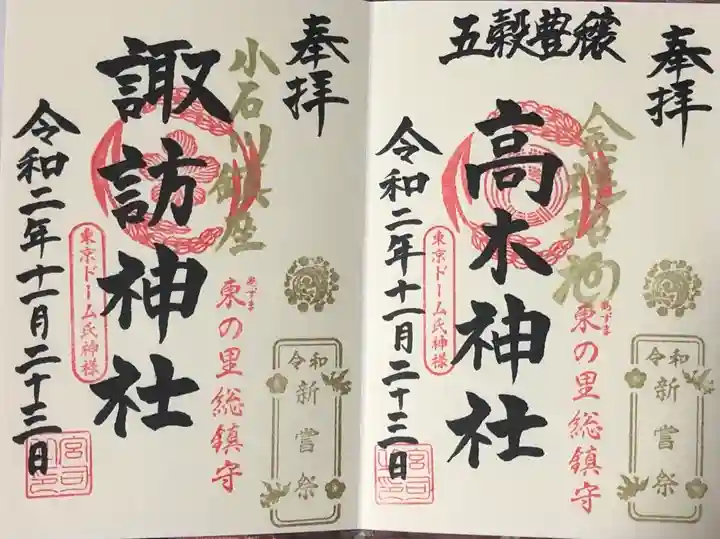 五穀豊穣
奉拝
高木神社
令和二年十一月二十三日
東京ドーム氏神様
あずま
東の里総鎮守
令和
新嘗祭
奉拝
小石川鎮座
諏訪神社
令和二年十一月二十三日
東京ドーム氏神様
あずま
東の里総鎮守
令和
新嘗祭